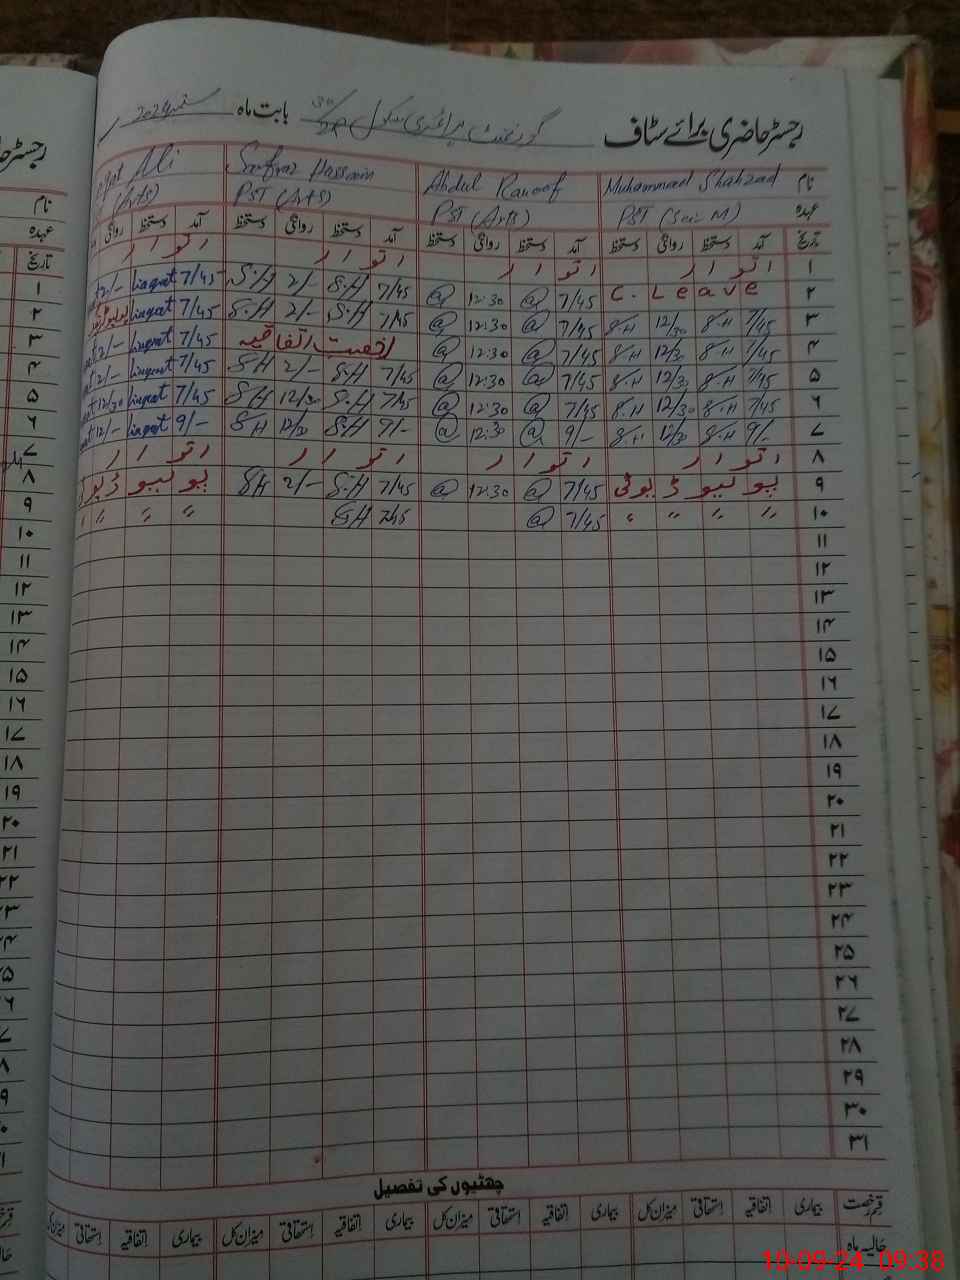 رجسٹر حاضری برائے سٹاف گورنمنٹ پرائمری سکول 30/2R بابت ماہ ستمبر 2024
نام Muhammad Shahzad Abdul Ranoof Sarfraz Hassain Ali
عہدہ PST (Sci-M) PST (Arts) PST (Arts) (Arts)
تاریخ آمد دستخط روانگی دستخط آمد دستخط روانگی دستخط آمد دستخط روانگی دستخط آمد دستخط روانگی
۱ اتوار اتوار اتوار اتوار
۲ C. Leave 7/45 @ 12:30 @ 7/45 S.H 2/- S.H 7/45 Liaqat 2/-
۳ 7/45 S.H 12/30 S.H 7/45 @ 12:30 @ 7/45 S.H 2/- S.H 7/45 Liaqat
۴ 7/45 S.H 12/30 S.H 7/45 @ 12:30 @ رخصت اتفاقیہ 7/45 Liaqat 2/-
۵ 7/45 S.H 12/30 S.H 7/45 @ 12:30 @ 7/45 S.H 2/- S.H 7/45 Liaqat 2/-
۶ 7/45 S.H 12/30 S.H 7/45 @ 12:30 @ 7/45 S.H 12/30 S.H 7/45 Liaqat 12/30
۷ 9/- S.H 12/30 S.H 9/- @ 12:30 @ 9/- S.H 12/30 S.H 9/- Liaqat 12/-
۸ اتوار اتوار اتوار اتوار
۹ پولیو ڈیوٹی 7/45 @ 12:30 @ 7/45 S.H 2/- S.H پولیو ڈیوٹی
۱۰ " " " " 7/45 @ 7/45 S.H " " "
۱۱
۱۲
۱۳
۱۴
۱۵
۱۶
۱۷
۱۸
۱۹
۲۰
۲۱
۲۲
۲۳
۲۴
۲۵
۲۶
۲۷
۲۸
۲۹
۳۰
۳۱
چھٹیوں کی تفصیل
قسم رخصت بیماری اتفاقیہ استحقاقی میزان کل بیماری اتفاقیہ استحقاقی میزان کل بیماری اتفاقیہ استحقاقی میزان کل بیماری اتفاقیہ استحقاقی میزان کل
حالیہ ماہ
10-09-24 09:38